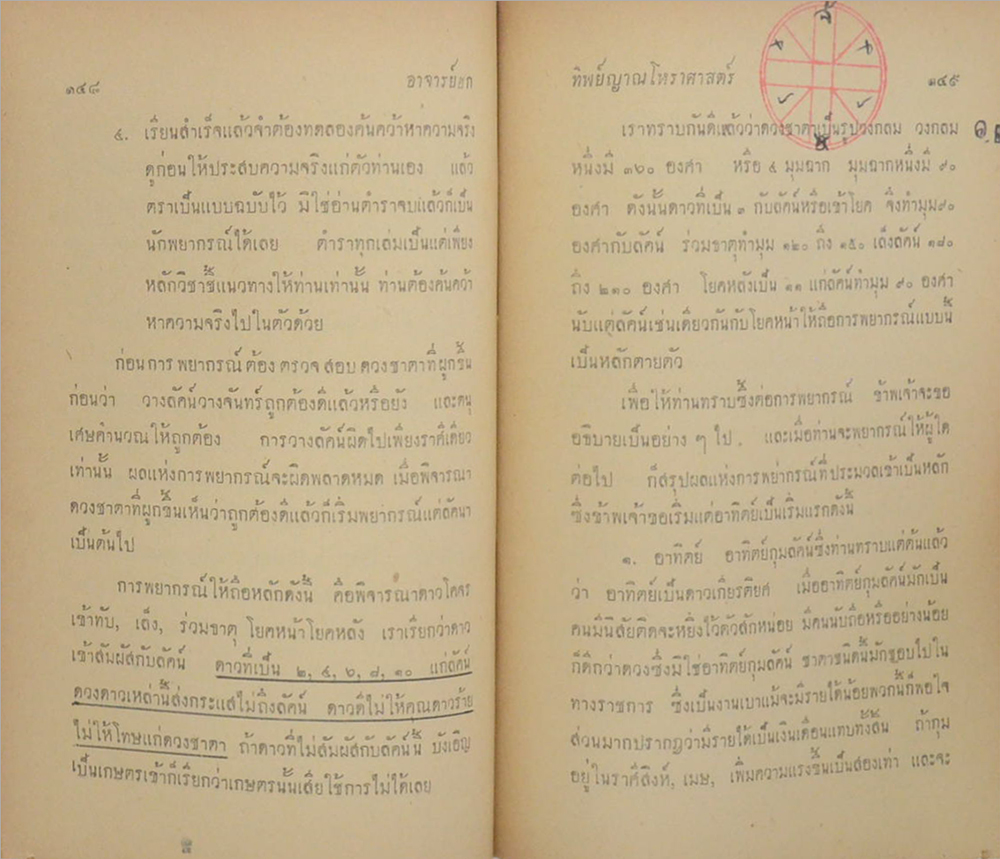 ๑๔๘
อาจารย์เอก
๕. เรียนสำเร็จแล้วจำต้องทดลองค้นคว้าหาความจริง
ดูก่อนให้ประสบความจริงแก่ตัวท่านเอง แล้ว
ตราเป็นแบบฉบับไว้ มิใช่อ่านตำราจบแล้วก็เป็น
นักพยากรณ์ได้เลย ตำราทุกเล่มเป็นแต่เพียง
หลักวิชาชี้แนวทางให้ท่านเท่านั้น ท่านต้องค้นคว้า
หาความจริงไปในตัวด้วย
ก่อนการพยากรณ์ต้องตรวจสอบดวงชาตาที่ผูกขึ้น
ก่อนว่า วางลัคน์วางจันทร์ถูกต้องดีแล้วหรือยัง และตนุ
เศษคำนวณให้ถูกต้อง การวางลัคน์ผิดไปเพียงราศีเดียว
เท่านั้น ผลแห่งการพยากรณ์จะผิดพลาดหมด เมื่อพิจารณา
ดวงชาตาที่ผูกขึ้นเห็นว่าถูกต้องดีแล้วก็เริ่มพยากรณ์แต่ลัคนา
เป็นต้นไป
การพยากรณ์ให้ถือหลักดังนี้ คือพิจารณาดาวโคจร
เข้าทับ, เล็ง, ร่วมธาตุ โยคหน้าโยคหลัง เราเรียกว่าดาว
เข้าสัมผัสกับลัคน์ ดาวที่เป็น ๒, ๕, ๖, ๘, ๑๐ แก่ลัคน์
ดวงดาวเหล่านี้ส่งกระแสไม่ถึงลัคน์ ดาวดีไม่ให้คุณดาวร้าย
ไม่ให้โทษแก่ดวงชาตา ถ้าดาวที่ไม่สัมผัสกับลัคน์นี้ บังเอิญ
เป็นเกษตรเข้าก็เรียกว่าเกษตรนั้นเสียใช้การไม่ได้เลย
ทิพย์ญาณโหราศาสตร์
๑๔๙
เราทราบกันดีแล้วว่าดวงชาตาเป็นรูปวงกลม วงกลม
หนึ่งมี ๓๖๐ องศา หรือ ๔ มุมฉาก มุมฉากหนึ่งมี ๙๐
องศา ดังนั้นดาวที่เป็น ๓ กับลัคน์หรือเข้าโยค จึงทำมุม๙๐
องศากับลัคน์ ร่วมธาตุทำมุม ๑๒๐ ถึง ๑๕๐ เล็งลัคน์ ๑๘๐
ถึง ๒๑๐ องศา โยคหลังเป็น ๑๑ แก่ลัคน์ทำมุม ๙๐ องศา
นับแต่ลัคน์เช่นเดียวกันกับโยคหน้าให้ถือการพยากรณ์แบบนี้
เป็นหลักตายตัว
เพื่อให้ท่านทราบซึ้งต่อการพยากรณ์ ข้าพเจ้าจะขอ
อธิบายเป็นอย่าง ๆ ไป. และเมื่อท่านจะพยากรณ์ให้ผู้ใด
ต่อไป ก็สรุปผลแห่งการพยากรณ์ที่ประมวลเข้าเป็นหลัก
ซึ่งข้าพเจ้าขอเริ่มแต่อาทิตย์เป็นเริ่มแรกดังนี้
๑. อาทิตย์ อาทิตย์กุมลัคน์ซึ่งท่านทราบแต่ต้นแล้ว
ว่า อาทิตย์เป็นดาวเกียรติยศ เมื่ออาทิตย์กุมลัคน์มักเป็น
คนมีนิสัยติดจะหยิ่งไว้ตัวสักหน่อย มีคนนับถือหรืออย่างน้อย
ก็ดีกว่าดวงซึ่งมิใช่อาทิตย์กุมลัคน์ ชาตาชนิดนี้มักชอบไปใน
ทางราชการ ซึ่งเป็นงานเบาแม้จะมีรายได้น้อยพวกนี้ก็พอใจ
ส่วนมากปรากฏว่ามีรายได้เป็นเงินเดือนแทบทั้งสิ้น ถ้ากุม
อยู่ในราศีสิงห์, เมษ, เพิ่มความแรงขึ้นเป็นสองเท่า และจะ